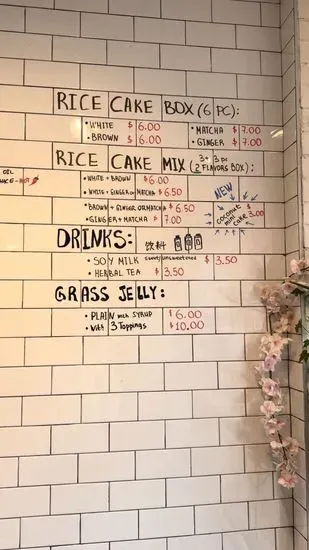 RICE CAKE BOX (6 PC):
• WHITE $ 6.00 • MATCHA $ 7.00
• BROWN $ 6.00 • GINGER $ 7.00
OIL
RICE CAKE MIX (3+3 pc 2 FLAVORS BOX):
• WHITE + BROWN $6.00
• WHITE + GINGER OR MATCHA $6.50
NEW
• BROWN + GINGER OR MATCHA $ 6.50
• GINGER + MATCHA $ 7.00
COCONUT MINI CAKE $ 3.00
DRINKS: 饮料
• SOY MILK sweet/unsweetened $ 3.50
• HERBAL TEA $ 3.50
GRASS JELLY:
• PLAIN with SYRUP $ 6.00
• With 3 Toppings $10.00